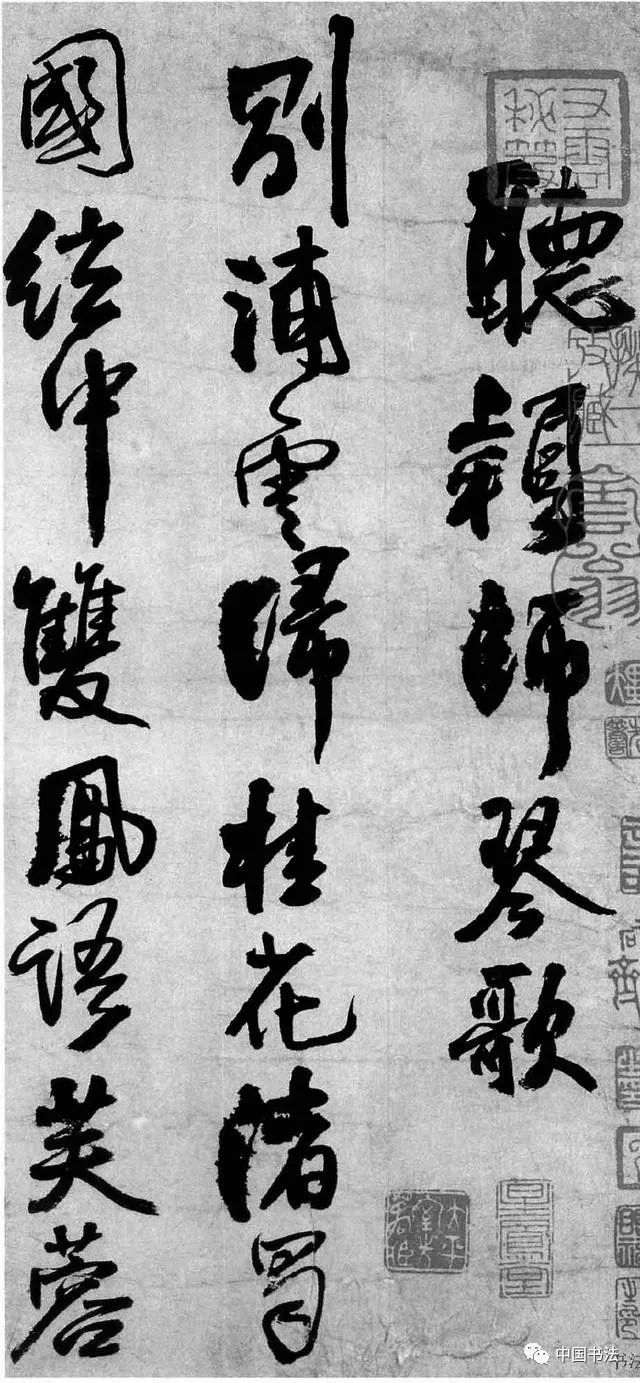 聽穎師琴歌
別浦雲歸桂花渚蜀
國絃中雙鳳語芙蓉
中国书法